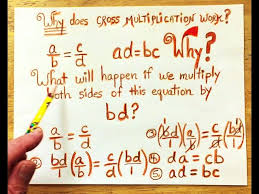 Why does CROSS MULTIPLICATION WORK?
a/b = c/d ad=bc Why?
What will happen if we multiply
both sides of this equation by
bd?
a/b = c/d ③ (bd/1)(a/b) = c/d(bd/1)
② bd/1(a/b) = c/d(bd/1) ④ da = cb
⑤ ad = bc